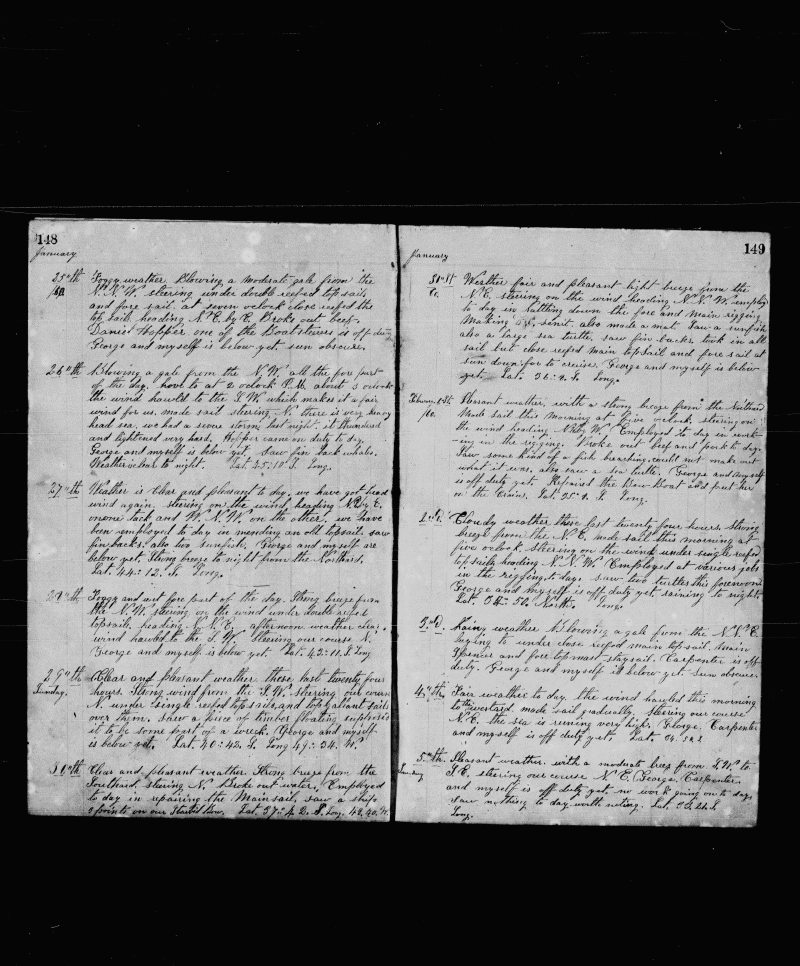 148
January
25"th Foggy weather Blowing a moderate gale from the
W.N.W. steering under double reefed top sails
and fore sail. at seven oclock close reefed the
top sails heading N.E. by E. Broke out beef.
Daniel Hopper one of the Boatsteers is off duty
George and myself is below yet sun obscure.
26"th Blowing a gale from the N.W. all the for part
of the day. hove to at 2 oclock P.M. about 3 oclock
the wind hawld to the S.W. which makes it a fair
wind for us. made sail steering N. there is very heavy
head sea. we had a severe storm last night. it thundered
and lightened very hard. Hopper came on duty to day.
George and myself is below yet saw fin back whales.
Weather clear to night. Lat. 45:10 S. Long.
27"th Weather is Clear and pleasant to day. we have got head
wind again. steering on the wind, heading N.E. by E.
on one tack and W.N.W. on the other, we have
been employed to day in mending an old topsail. saw
fin backs, also two sunfish. George and myself are
below yet. Strong breeze to night from the Northard.
Lat. 44:12. S. Long.
28"th Foggy and wet fore part of the day. Strong breeze from
the N.W. steering on the wind under double reefed
topsails, heading N.N.E. afternoon weather clear.
wind hawld to the S.W. Steering our course N.
George and myself is below yet. Lat. 42:11. S. Long
29"th Clear and pleasant weather these last twenty four
Sunday. hours. Strong wind from the S.W. steering our course
N. under single reefed top sails, and top galiant sails
over them. saw a piece of timber floating supposed
it to be some part of a wreck. George and myself
is below yet. Lat. 40:42. S. Long 49:34. W.
30"th Clear and pleasant weather. Strong breeze from the
Southard, steering N. Broke out water. Employed
to day in repairing the Mainsail, saw a ship
2 points on our Starbd bow. Lat. 37:42. S. Long. 48.40. W.
149
January
31"st Weather fair and pleasant light breeze from the
N.E. steering on the wind heading N.N.W. employed
to day in rattling down the fore and main rigging
Making senit. also made a mat. Saw a sunfish
also a large sea turtle, saw fin backs. took in all
sail but close reefed main topsail and fore sail at
sun down for to cruise. George and myself is below
yet. Lat. 36:9. S. Long.
February 1"st Plesant weather, with a strong breeze from the Nathard
Made sail this Morning at five oclock, steering on
the wind heading N by W. Employed to day in work-
-ing in the rigging. Broke out beef and pork to day.
Saw some kind of a fish breaching. could not make out
what it was. also saw a sea turtle. George and myself
is off duty yet. Repaired the Bow Boat and put her
on the Crains. Lat. 35:9. S. Long.
2"d. Cloudy weather these last twenty four hours, strong
breeze from the N.E. made sail this morning at
five oclock. steering on the wind under single reefed
top sails, heading N.N.W. Employed at various jobs
in the rigging to day. saw two turtles this forenoon
George and myself is off duty yet raining to night.
Lat. 34:50. North. Long.
3"d. Rainy weather Blowing a gale from the N.N.E.
laying to under close reefed main top sail. Main
Spencer and fore top mast staysail. Carpenter is off
duty. George and myself is below yet. Sun obscure.
4"th. Fair weather to day the wind hauled this morning
to the westard. made sail gradually, steering our course
N.E. the sea is runing very high. George, Carpenter
and myself is off duty yet. Lat. 34
5"th. Pleasant weather. with a moderate breeze from S.W. to
Sunday S.E. steering our course N.E. George, Carpenter,
and myself is off duty yet. no work going on to day.
Saw nothing to day worth noting. Lat.
Long.